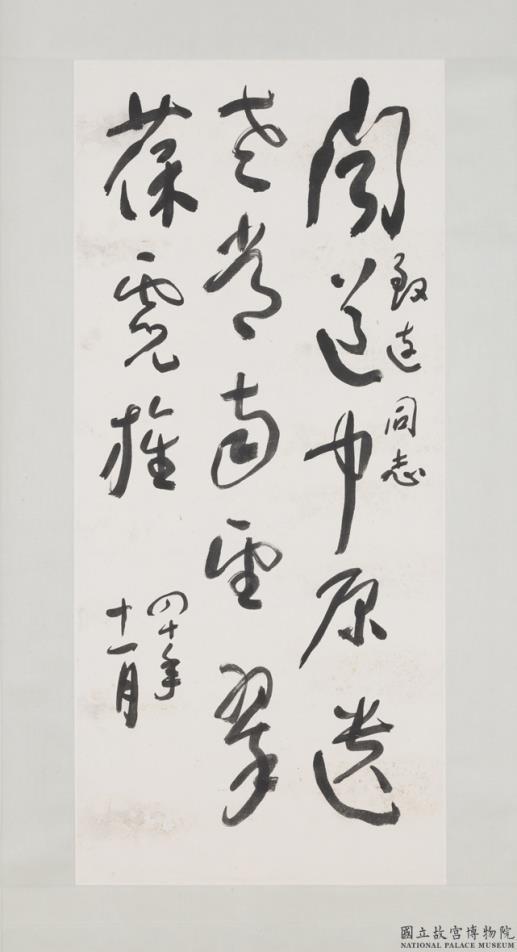 聞道中原遺
致遠同志
老常南望翠
葆霓旌
四十年
十一月
國立故宮博物院
NATIONAL PALACE MUSEUM